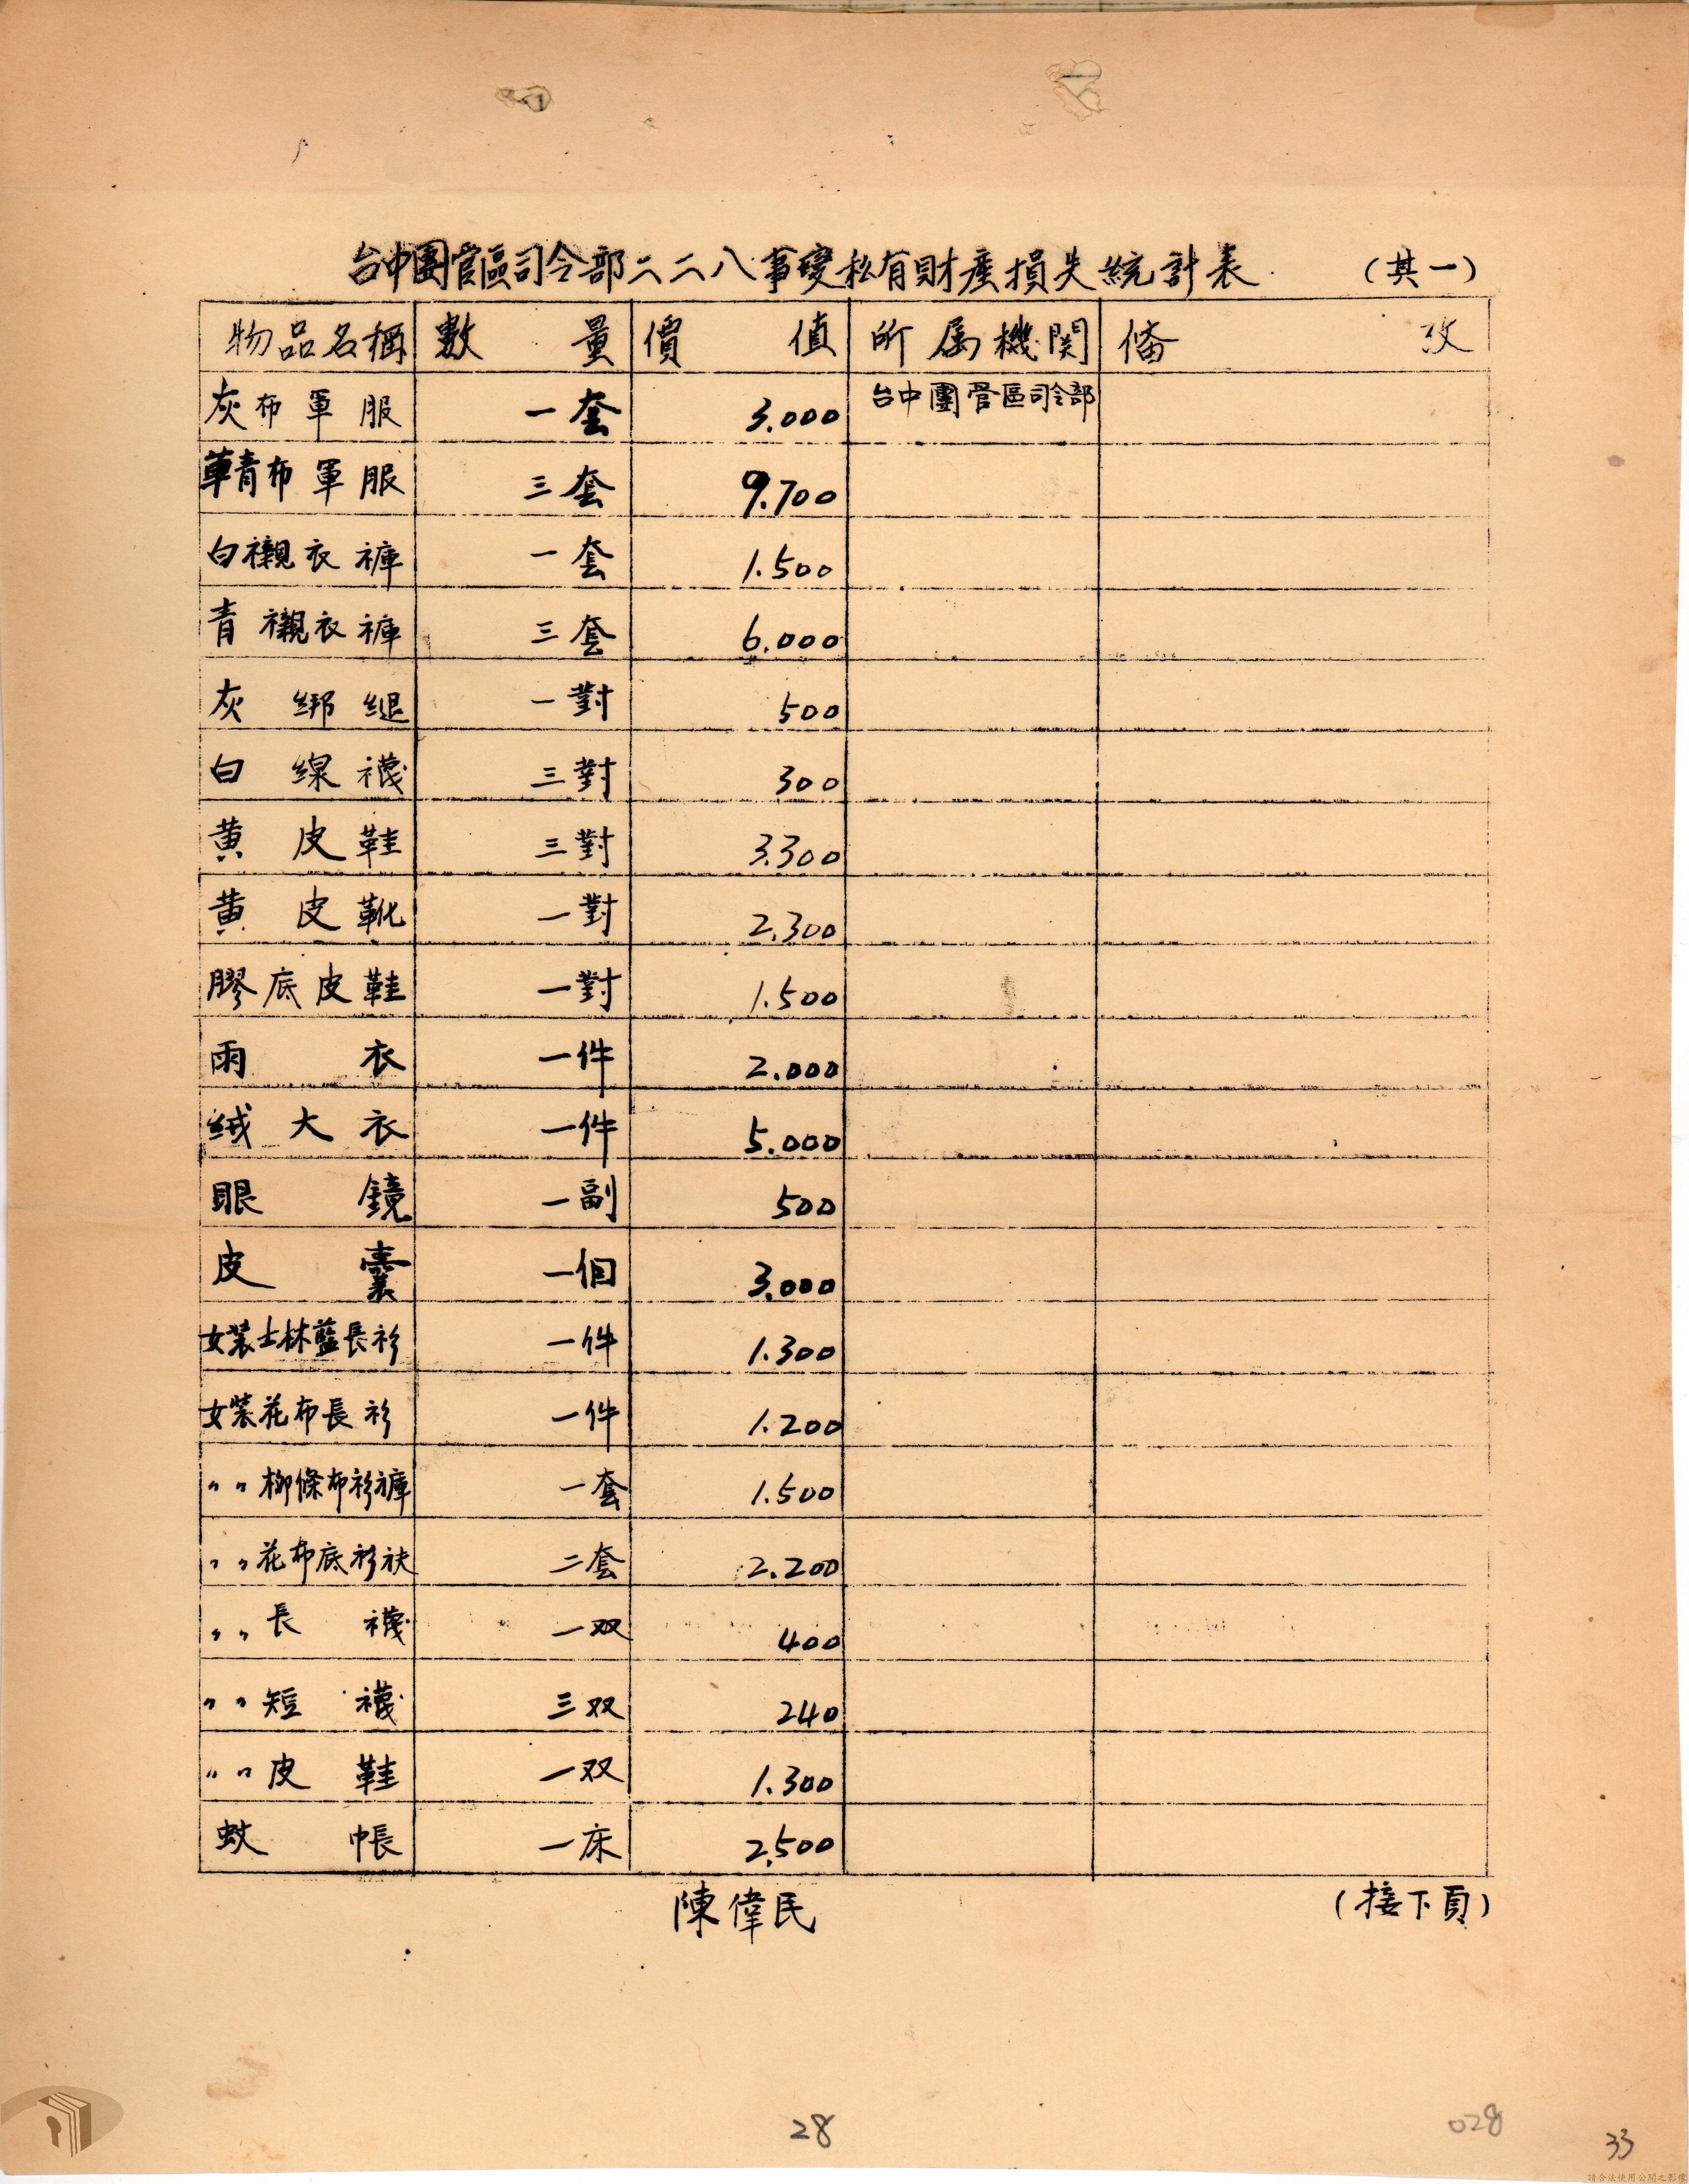 台中團管區司令部二二八事變私有財產損失統計表 (其一)
物品名稱 數量 價值 所属機関 備攷
灰布軍服 一套 3.000 台中團管區司令部
草青布軍服 三套 9.700
白襯衣褲 一套 1.500
青襯衣褲 三套 6.000
灰綁縋 一對 500
白線襪 三對 300
黄皮鞋 三對 3.300
黄皮靴 一對 2.300
膠底皮鞋 一對 1.500
雨衣 一件 2.000
絨大衣 一件 5.000
眼鏡 一副 500
皮囊 一個 3.000
女裝士林藍長衫 一件 1.300
女裝花布長衫 一件 1.200
〃〃柳條布衫褲 一套 1.500
〃〃花布底衫衭 二套 2.200
〃〃長襪 一双 400
〃〃短襪 三双 240
〃〃皮鞋 一双 1.300
蚊帳 一床 2,500
陳偉民 (接下頁)
28
028
33
請合法使用公開之影像